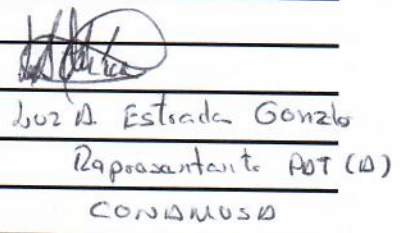 Luz A. Estrada Gonzlo
Representante PAT (A)
CONAMUSA